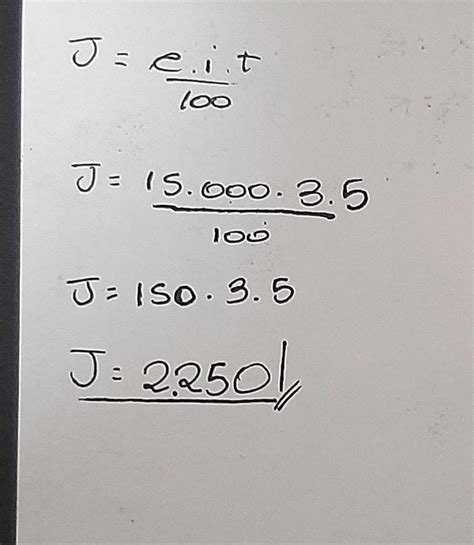 J = e.i.t
100
J = 15.000.3.5
100
J = 150.3.5
J = 2.250